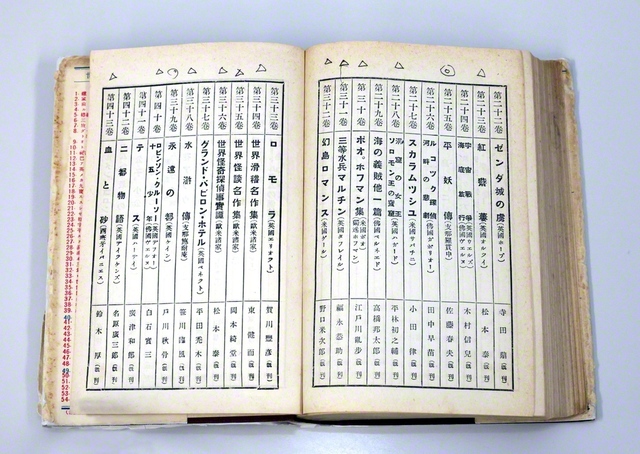 第二十二卷 ゼンダ城の虜(英國ホープ) 寺田鼎(既刊)
第二十三卷 紅蘩蔞(英國オルツイ) 松本泰(既刊)
第二十四卷 宇宙戰爭(英國ウエルズ) 海底旅行(佛國ヴエルヌ) 木村信兒(既刊)
第二十五卷 平妖傳(支那羅貫中) 佐藤春夫(既刊)
第二十六卷 ルコツク探偵 河畔の悲劇(佛國ガボリオー) 田中早苗(既刊)
第二十七卷 スカラムツシユ(米國サバチニ) 小田律(既刊)
第二十八卷 洞窟の女王 ソロモン王の寶窟(英國ハガード) 平林初之輔(既刊)
第二十九卷 海の義賊他一篇(佛國ベルネエド) 高橋邦太郎(既刊)
第三十卷 ポオ、ホフマン集(米國ポオ 獨逸ホフマン) 江戸川亂步(既刊)
第三十一卷 三等水兵マルチン(英國タフレイル) 福永恭助(既刊)
第三十二卷 幻島ロマンス(米國ゲール) 野口米次郎(既刊)
第三十四卷 ロモラ(英國エリオクト) 賀川豐彦(既刊)
第三十三卷 世界滑稽名作集(歐米諸家) 東健而(既刊)
第三十五卷 世界怪談名作集(歐米諸家) 岡本綺堂(既刊)
第三十六卷 世界怪奇探偵事實譚(歐米諸家) 松本泰(既刊)
第三十七卷 グランド・バビロン・ホテル(英國ベネクト) 平田禿木(既刊)
第三十八卷 水滸傳(支那施耐庵) 笹川臨風(既刊)
第三十九卷 永遠の都(英國ケイン) 戸川秋骨(既刊)
第四十卷 ロビンソン・クルーソー(英國デフオー) 十五少年(佛國ヴエルヌ) 白石實三(既刊)
第四十一卷 テス(英國ハーデイ) 廣津和郎(既刊)
第四十二卷 二都物語(英國デイクケンズ) 名原廣三郎(既刊)
第四十三卷 血と砂(西班牙イバニエス) 鈴木厚(既刊)